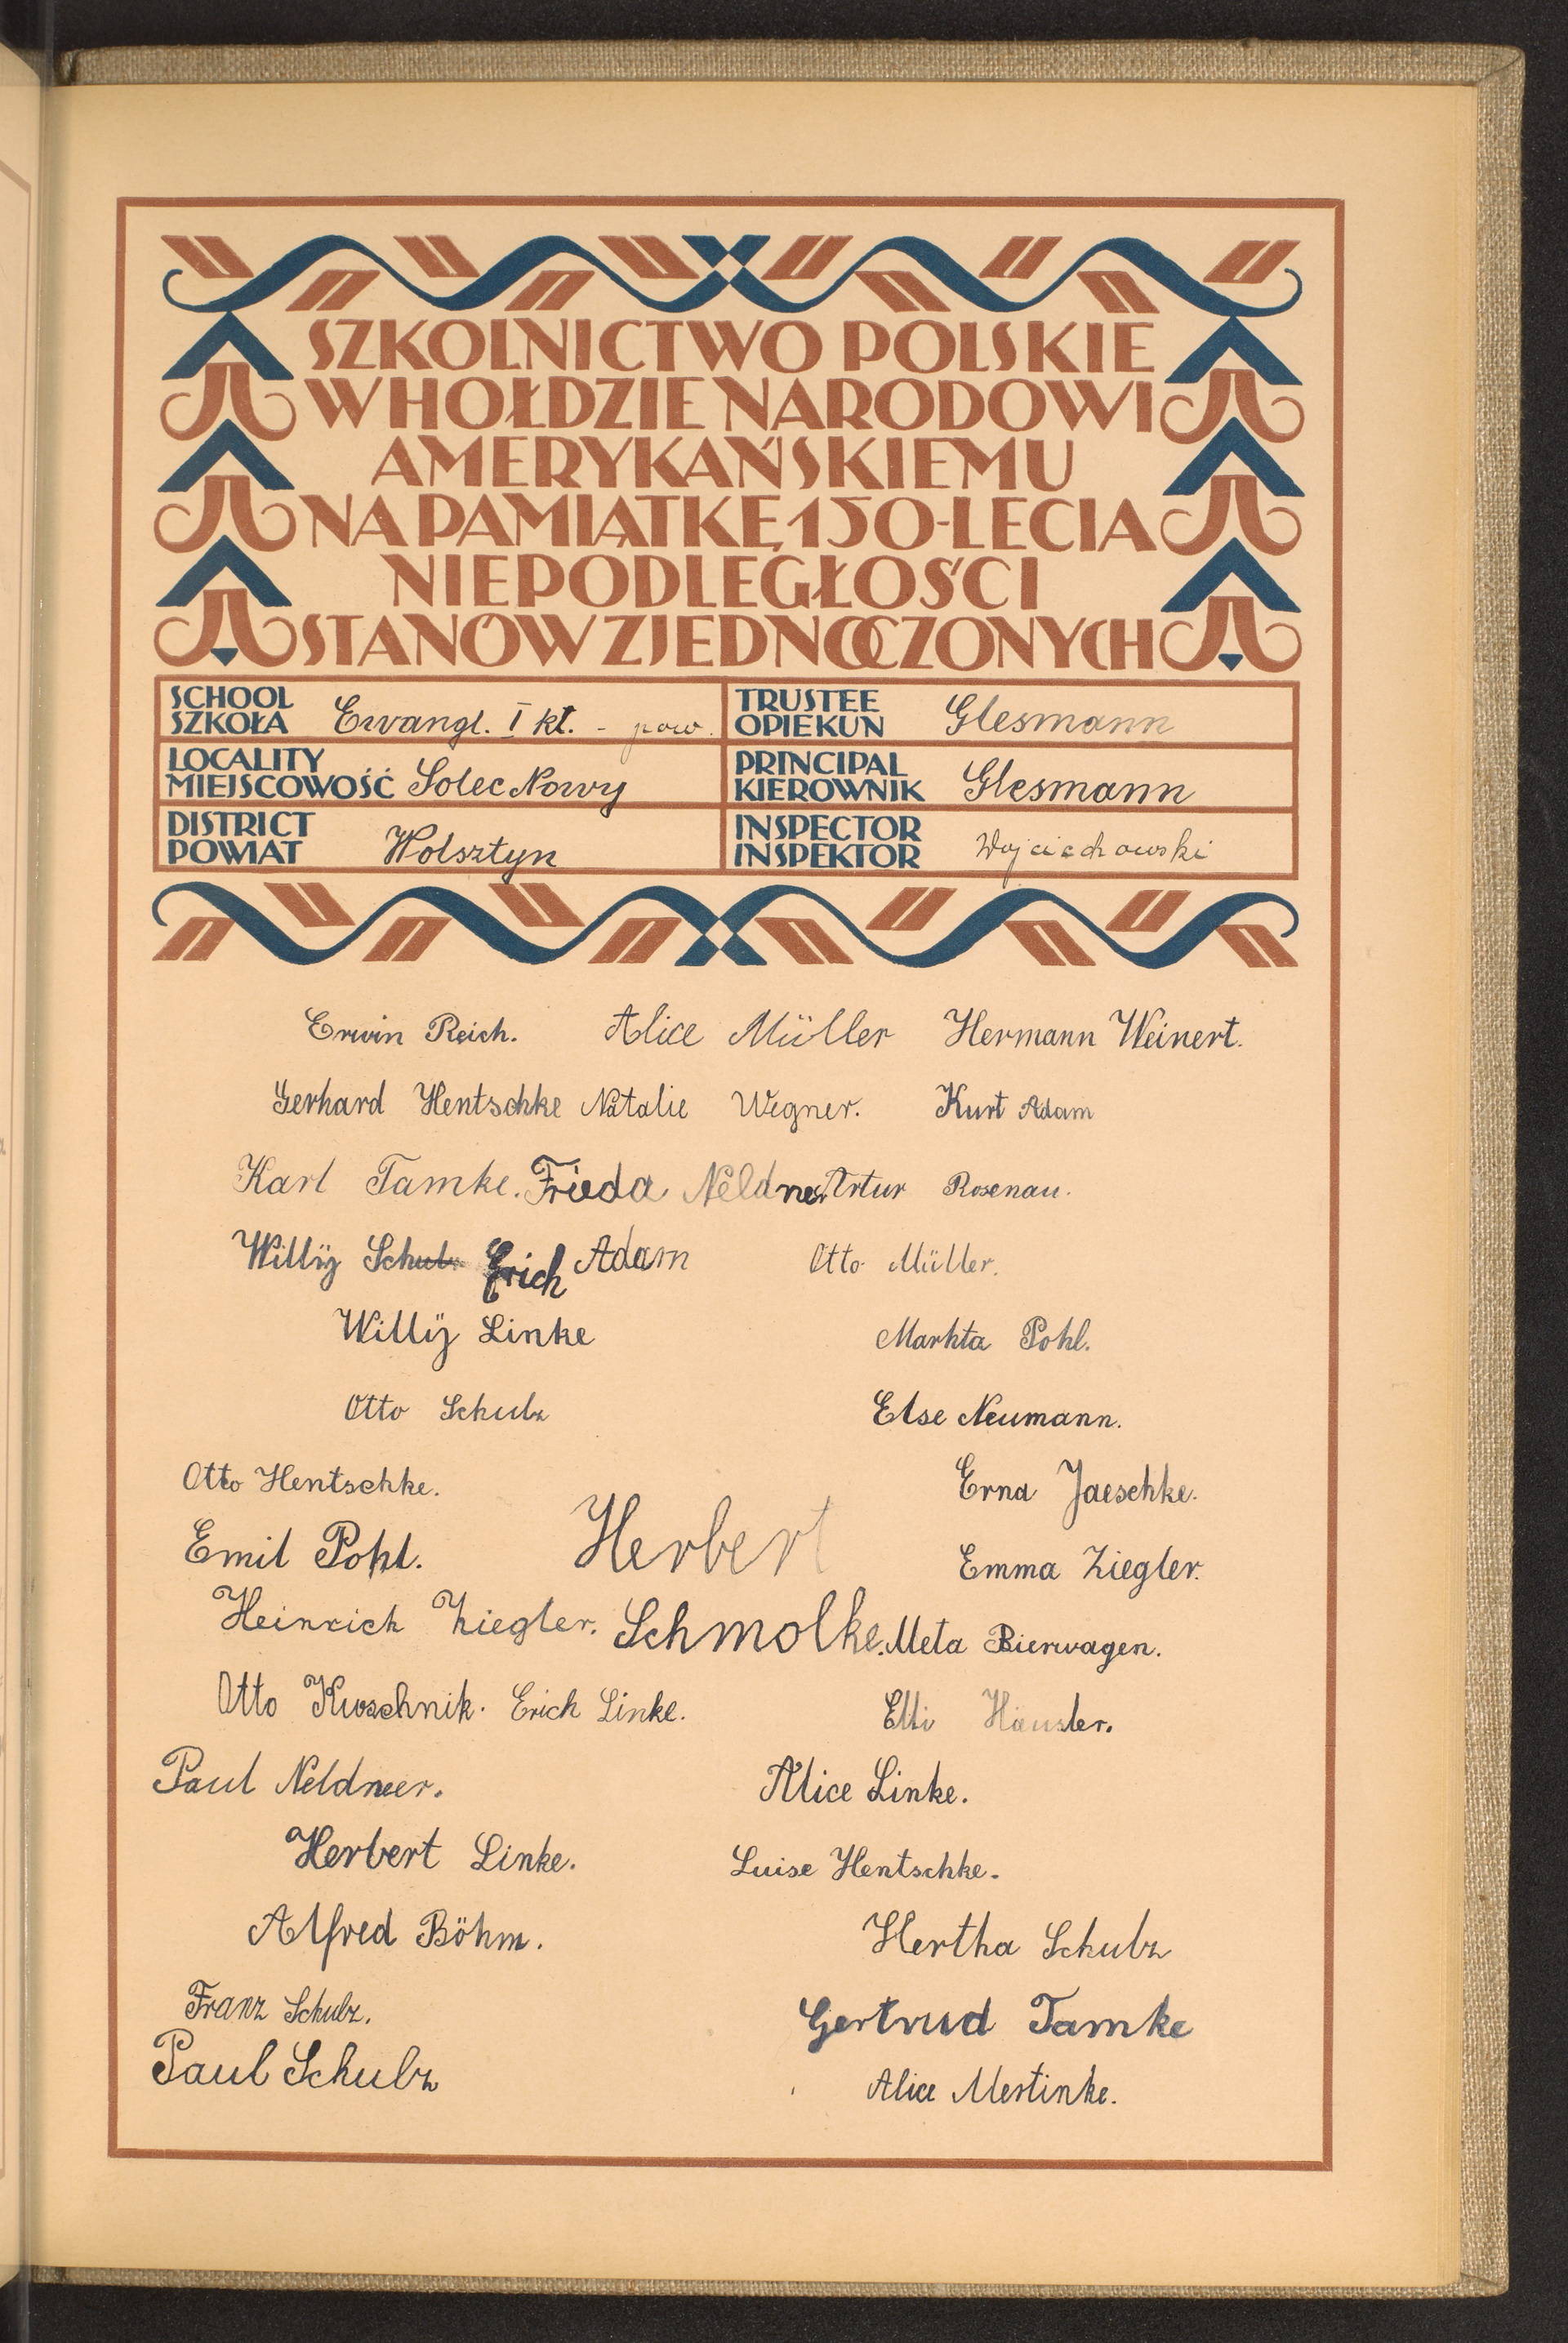 SZKOLNICTWO POLSKIE
W HOŁDZIE NARODOWI
AMERYKAŃSKIEMU
NA PAMIĄTKĘ 150-LECIA
NIEPODLEGŁOŚCI
STANÓW ZJEDNOCZONYCH
SCHOOL
SZKOŁA Ewangl. I kl. - pow.
TRUSTEE
OPIEKUN Glesmann
LOCALITY
MIEJSCOWOŚĆ Solec Nowy
PRINCIPAL
KIEROWNIK Glesmann
DISTRICT
POWIAT Wolsztyn
INSPECTOR
INSPEKTOR Wojciechowski
Erwin Reich. Alice Müller Hermann Weinert.
Gerhard Hentschke Natalie Wegner. Kurt Adam
Karl Tamke. Frieda Neldner Artur Rosenau.
Willÿ Schulz Erich Adam Otto Müller.
Willÿ Linke Markta Pohl.
Otto Schulz Else Neumann.
Otto Hentschke. Erna Jaeschke.
Emil Pohl. Herbert Emma Ziegler.
Heinrich Ziegler. Schmolke. Meta Bierwagen.
Otto Kuoschnik. Erich Linke. Elli Häusler.
Paul Neldner. Alice Linke.
Herbert Linke. Luise Hentschke.
Alfred Böhm. Hertha Schulz
Franz Schulz. Gertrud Tamke
Paul Schulz Alice Mertinke.